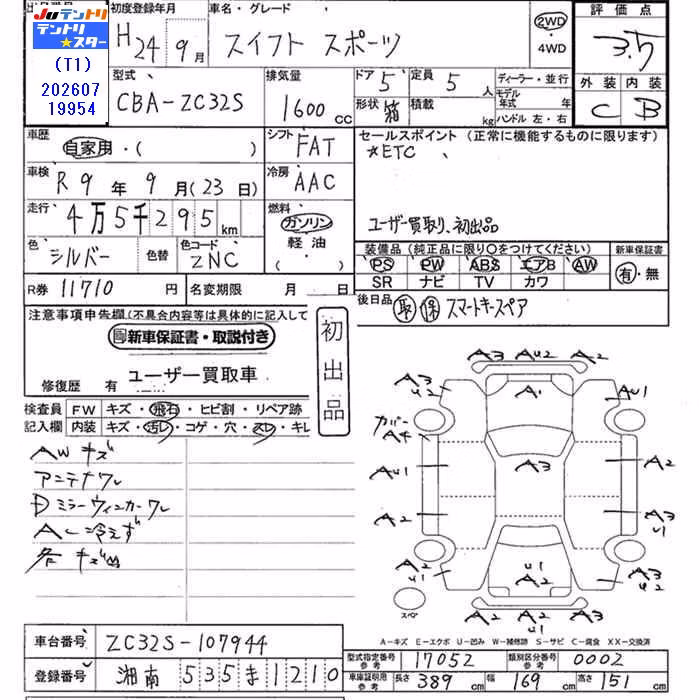 Juテントリ
テントリ★スター
(T1)
202607
19954
初度登録年月
H 24年 9月
車名・グレード
スイフト スポーツ
2WD
・4WD
評価点
3.5
外装 内装
C B
型式
CBA-ZC32S
排気量
1600 cc
ドア 5
定員 5 人
形状 箱
積載 kg
ディーラー・並行
モデル年式 年
ハンドル 左・右
車歴
自家用・( )
シフト
FAT
車検
R 9年 9月(23日)
冷房
AAC
走行
4万5千295km
燃料
ガソリン
軽油
・( )
色
シルバー
色替
色コード
ZNC
R券 11710 円
名変期限 月 日
セールスポイント (正常に機能するものに限ります)
*ETC
ユーザー買取り、初出品
装備品(純正品に限り○をつけてください)
PS PW ABS エアB AW
SR ナビ TV カワ
新車保証書
有・無
後日品 取 保 スマートキースペア
注意事項申告欄(不具合内容等は具体的に記入して
新車保証書・取説付き
ユーザー買取車
修復歴 有
初出品
検査員記入欄
FW キズ・飛石・ヒビ割・リペア跡
内装 キズ・汚レ・コゲ・穴・スレ・キレ
AWキズ
アンテナワレ
Dミラーウィンカーワレ
AC冷えず
各キズ凹
A3 AU2 A2
A3
U2
A1
AU1
カバー
A4
A3
AU1
A2
A2
A3
U1
A2
U2
U1
A2
A3
U2
A2 AU1 A2
スペア
A-キズ E-エクボ U-凹み W-補修跡 S-サビ C-腐食 XX-交換済
車台番号 ZC32S-107944
登録番号 湘南 535 ま 1210
型式指定番号 参考 17052
類別区分番号 参考 0002
車庫証明用 参考 長さ 389 cm 幅 169 cm 高さ 151 cm